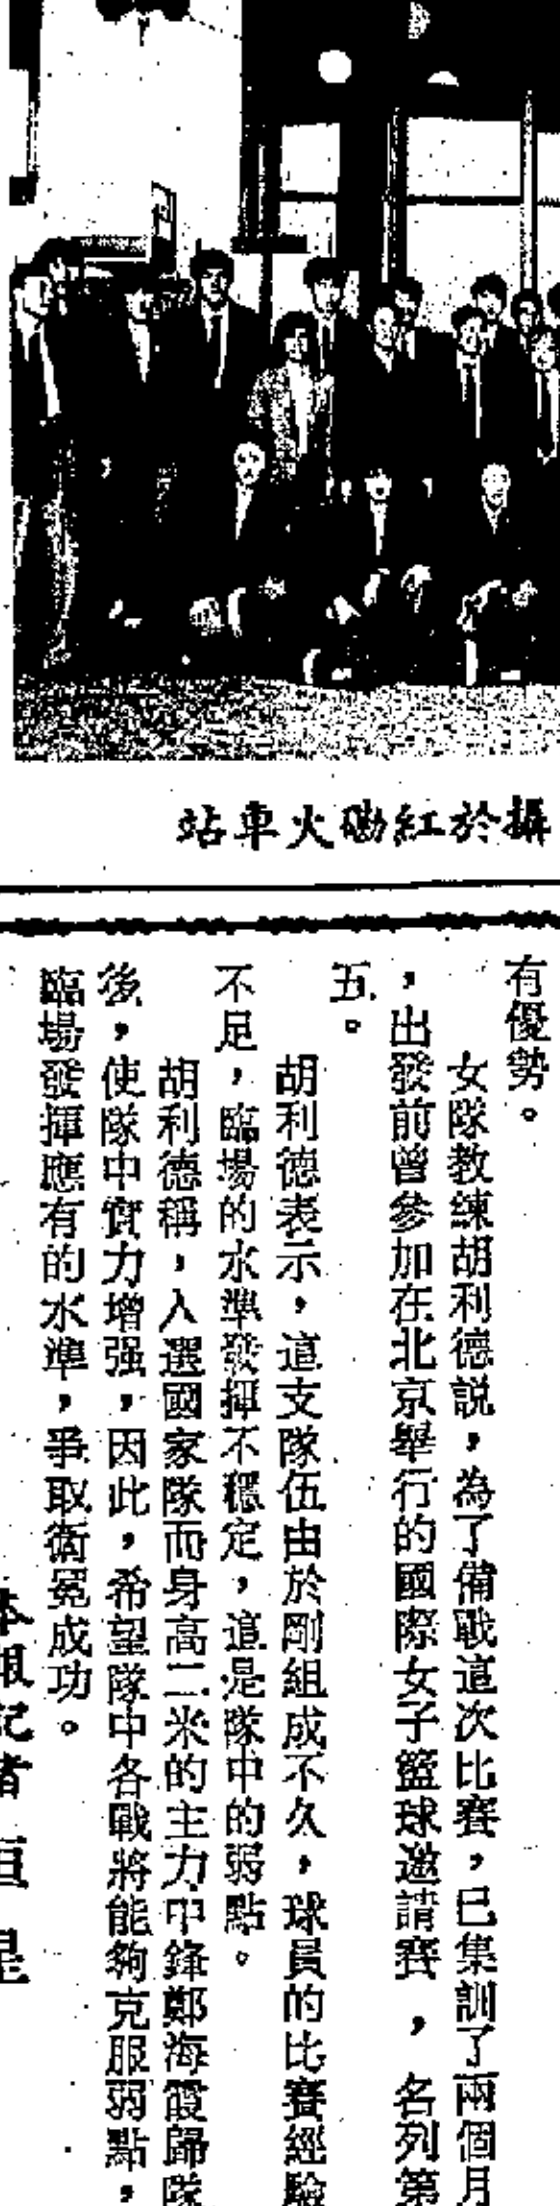 攝於紅磡火車站
有優勢。
女隊教練胡利德説，為了備戰這次比賽，已集訓了兩個月
，出發前曾參加在北京舉行的國際女子籃球邀請賽，名列第
五。
胡利德表示，這支隊伍由於剛組成不久，球員的比賽經驗
不足，臨場的水準發揮不穩定，這是隊中的弱點。
胡利德稱，入選國家隊而身高二米的主力中鋒鄭海霞歸隊
後，使隊中實力增强，因此，希望隊中各戰將能夠克服弱點，
臨場發揮應有的水準，爭取衛冕成功。
本報記者 恒星